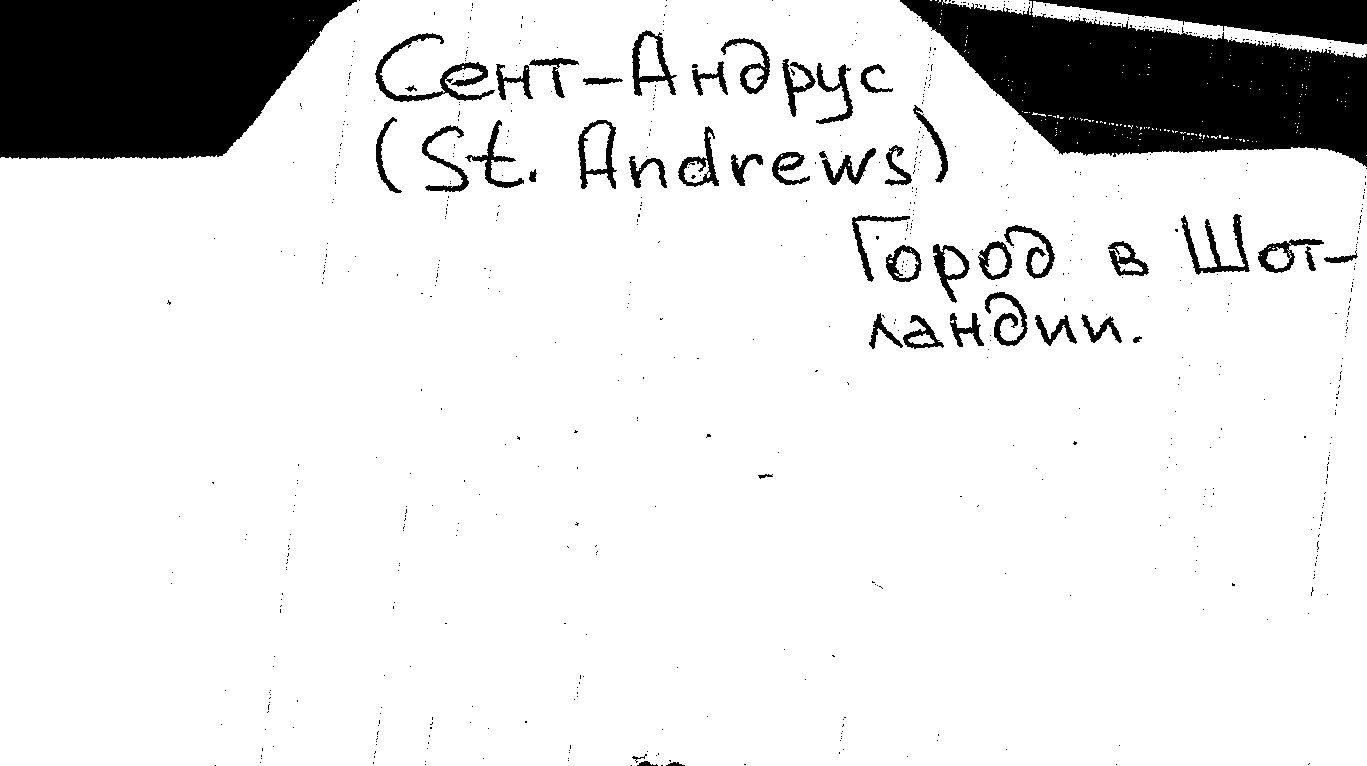 Сент-Андрус
(St. Andrews)
Город в Шот-
ландии.